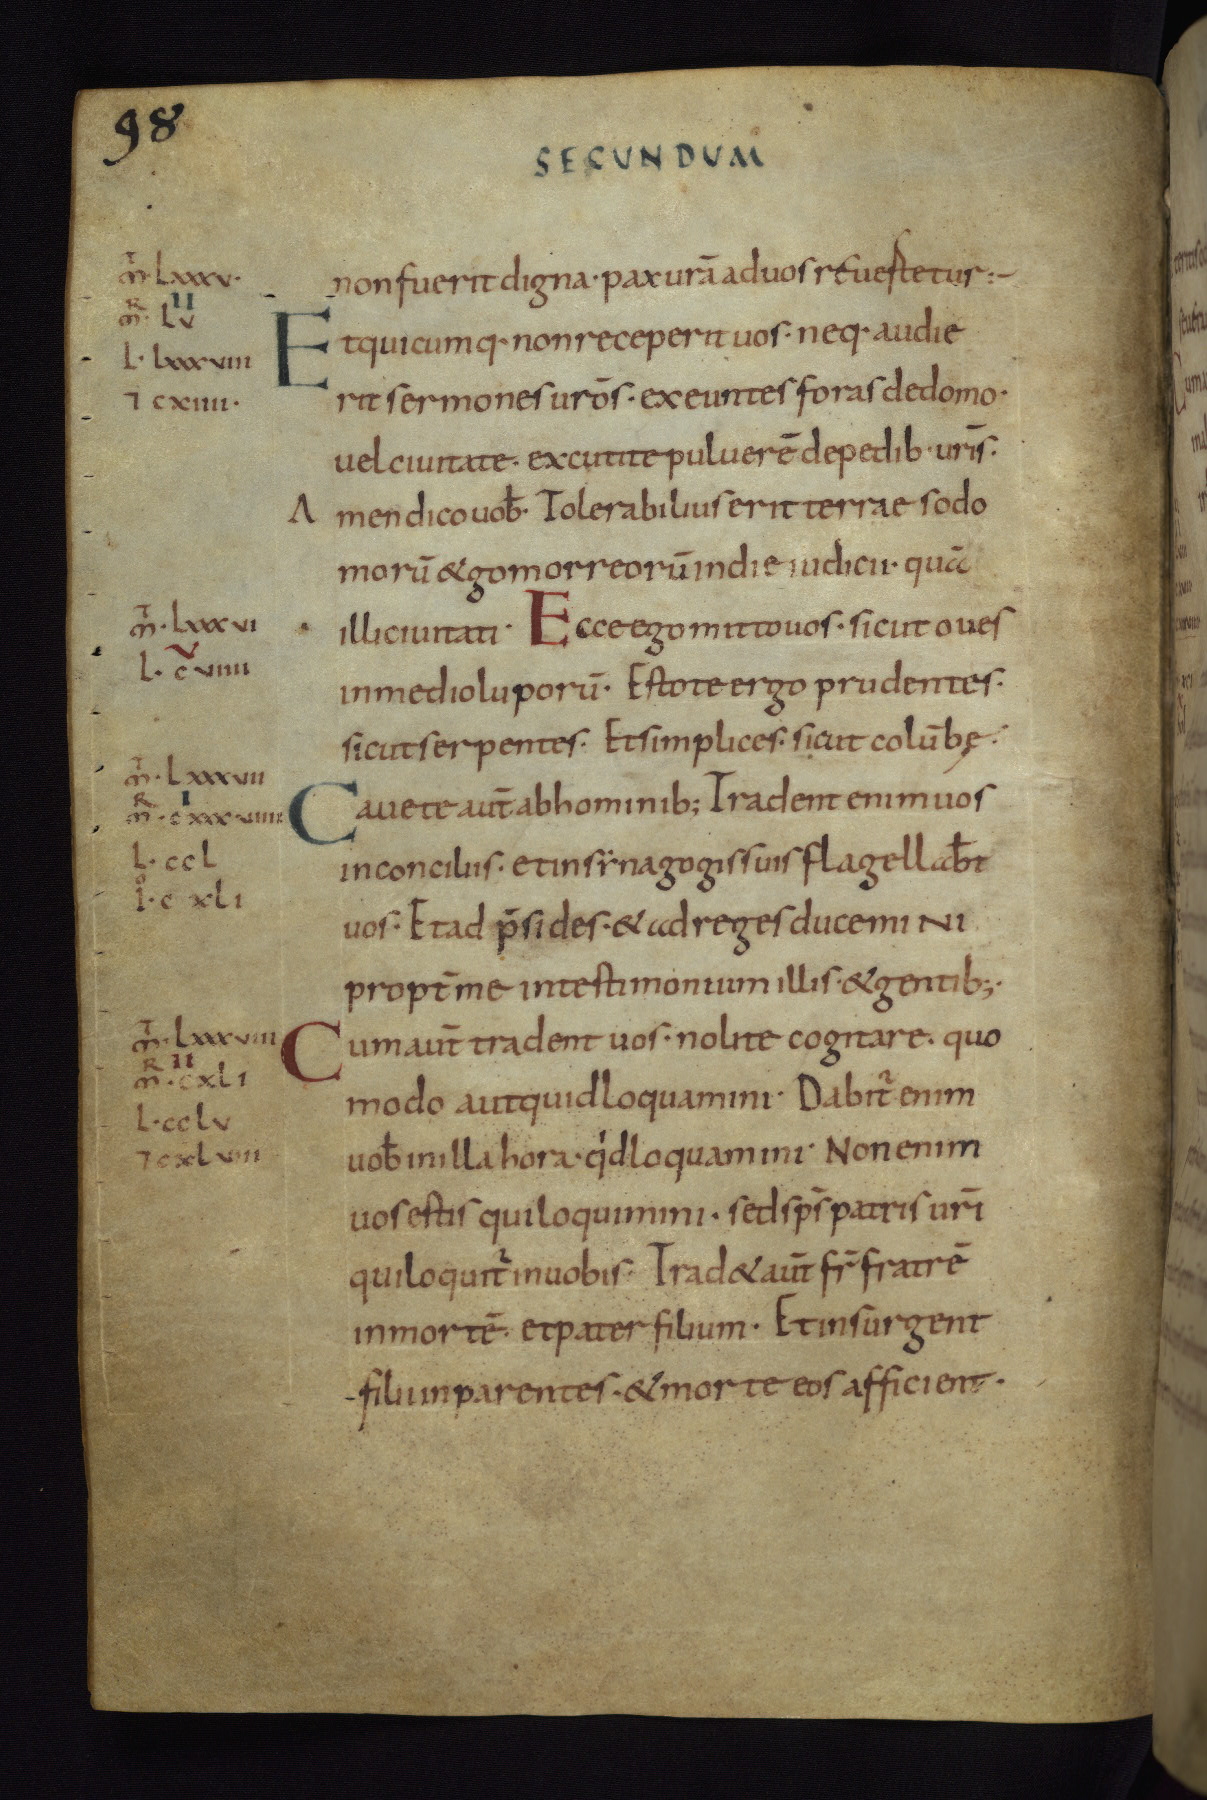 98
SECUNDUM
m̄·Lxxxv·
R II
m̄· Lv
L· Lxxxviii
⁊ cxiiii·
non fuerit digna· pax urā ad uos
Et quicumq· non receperit uos· neq· audie
rit sermones urōs· exeuntes foras de domo·
uel ciuitate· excutite puluerē de pedib· urīs·
Amen dico uob̄· Tolerabilius erit terrae sodo
morū & gomorreorū in die iudicii· quā
m̄·Lxxxvi
L· cviiii
v
illi ciuitati· Ecce ego mitto uos· sicut oues
in medio luporū· Estote ergo prudentes·
sicut serpentes· Et simplices· sicut colūbę·
m̄·Lxxxvii
R I
m̄·cxxxviiii
L·ccL
Io·cxLi
Cauete aut̄ ab hominib; Tradent enim uos
in conciliis· et in sẏnagogis suis flagellab̄t
uos· Et ad p̄sides· & ad reges ducemini
propt̄ me in testimonium illis· & gentib;·
m̄·Lxxxviii
R II
m̄·cxLi
L·ccLv
⁊ cxLviii
Cum aut̄ tradent uos· nolite cogitare· quo
modo aut quid loquamini· Dabit᷑ enim
uob̄ in illa hora· qⁱd loquamini· Non enim
uos estis qui loquimini· sed sp̄s patris urī
qui loquit᷑ in uobis· Trad& aut̄ fr̄ fratrē
in mortē· et pater filium· Et insurgent
filii in parentes· & morte eos afficient·